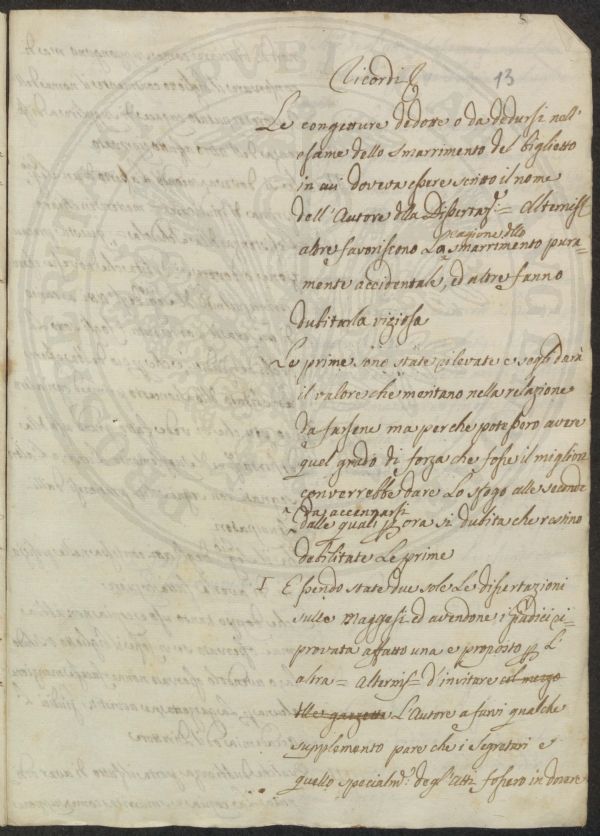 13
Ricordi
Le congetture dedotte o da dedursi nell'
esame dello smarrimento del biglietto
in cui doveva essere scritto il nome
dell'Autore dlla Dissertaz.e = Alternis
cagione dllo
altre favoriscono La smarrimento pura=
mente accidentale, ed altre fanno
dubitarla viziosa
Le prime sono state rilevate e segli darà
il valore che meritano nella relazione
da farsene ma perche potessero avere
quel grado di forza che fosse il migliore
converrebbe dare Lo sfogo alle seconde
da accennarsi
dalle quali p ora si dubita che restino
debilitate Le prime
I Essendo state due sole Le dissertazioni
sulle Maggesi ed avendone i Giudici ri=
provata affatto una e proposto p L'
altra = Alternis = d'invitare col mezzo
dlle gazzette L'Autore a farvi qualche
supplemento pare che i Segretari e
quello specialm.e degl'Atti fossero in dovere